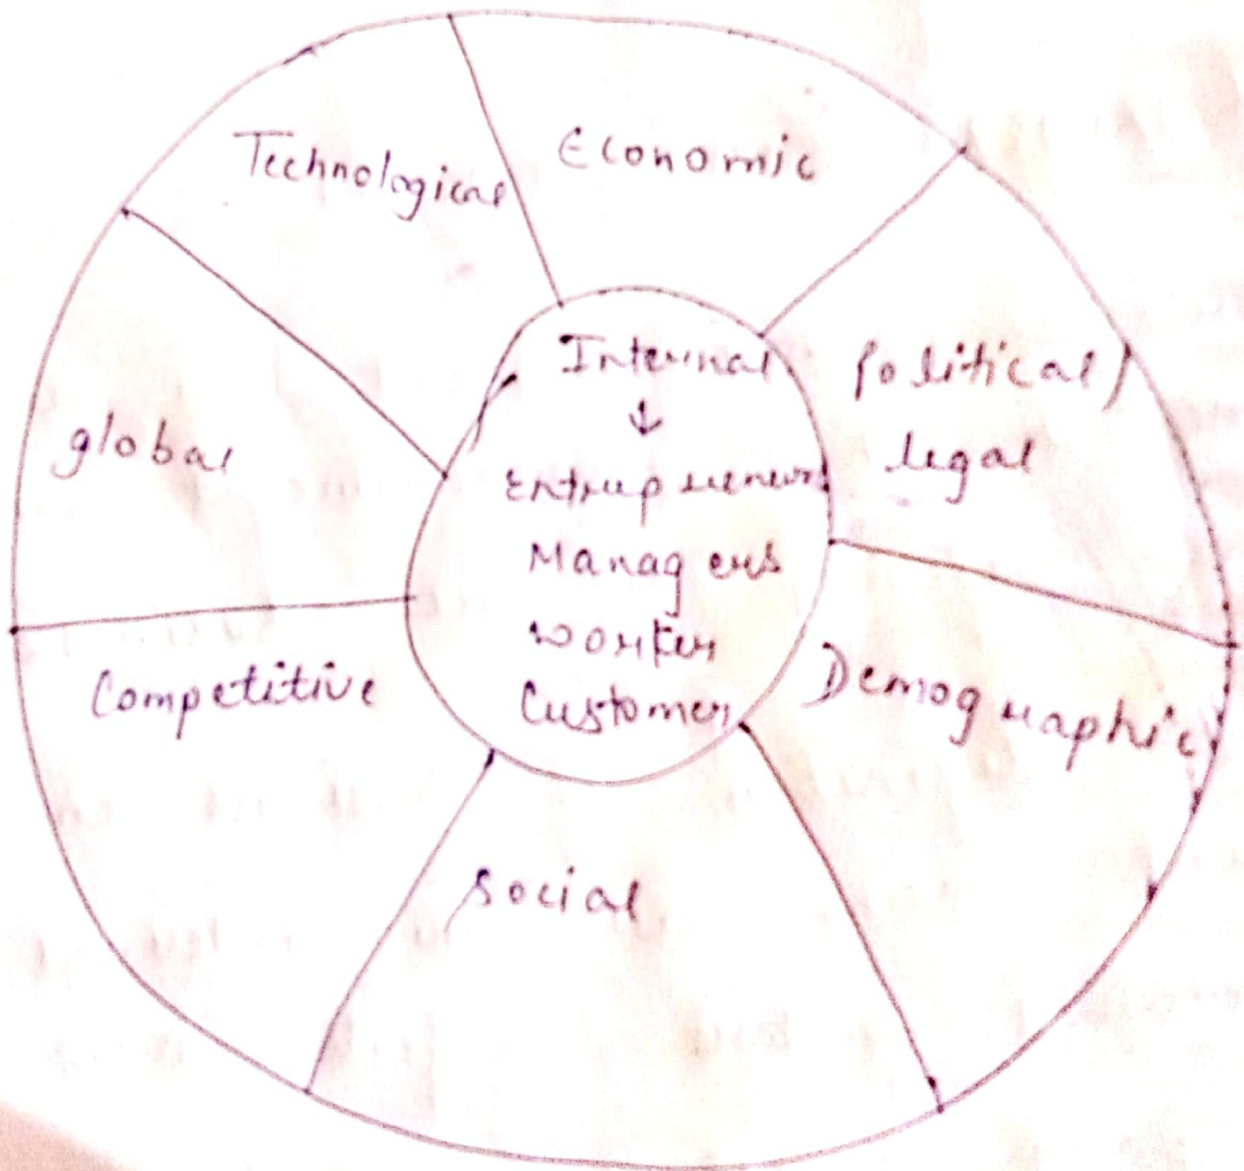 Technological
Economic
Political/
legal
Demographic
Social
Competitive
global
Internal
↓
Entrepreneurs
Managers
worker
Customer